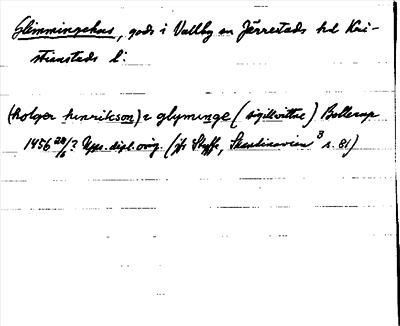 Glimmingehus, gods i Vallby sn Järrestads hd Kri-
stianstads l:
(holger henrikson) z glyminge (sigillvittne) Bollerup
1456 28/6? Upps. dipl. orig. (jfr Styffe, Skandinavien³ s. 81)